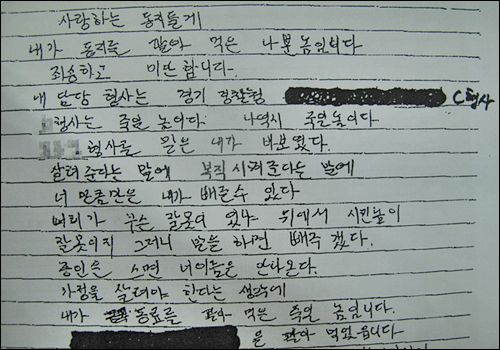 사랑하는 동지들게
내가 동지를 팔아 먹은 나쁜 놈입니다
죄송하고 미안합니다.
내 담당 형사는 경기 경찰청 C형사
형사는 죽일 놈이다. 나역시 죽일놈이다.
형사를 믿은 내가 바보였다.
살려준다는 말에 복직 시켜준다는 말에
너 만큼만은 내가 빼줄수 있다
머리가 무슨 잘못이 있냐 위에서 시킨놈이
잘못이지 그러니 말을 하면 빼주겠다.
증인은 스면 너이들은 안나온다.
가정을 살려야 한다는 생각에
내가 동료를 팔아 먹은 죽일 놈입니다.
을 팔아 먹었읍니다